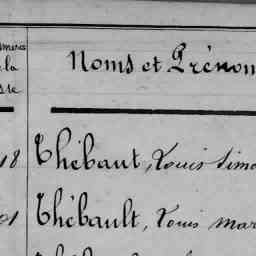 la Noms et Prénom
18 Thébaut, Louis Simo
01 Thébault, Louis mar